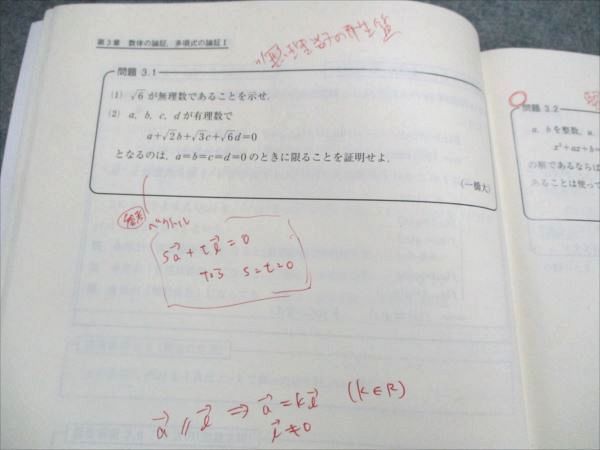 第3章 数体の論証,多項式の論証 I
問題 3.1
(1) √6 が無理数であることを示せ.
(2) a, b, c, d が有理数で
a+√2b+√3c+√6d=0
となるのは, a=b=c=d=0 のときに限ることを証明せよ.
(一橋大)
参考
ベクトル
sa⃗ + tb⃗ = 0
s=t=0
a⃗ // b⃗ ⇒ a⃗ = kb⃗ (k∈R)
b⃗ ≠ 0
問題 3.2
a, b を整数, u,
x²+ax+b=
の解であるならば
あることは使って